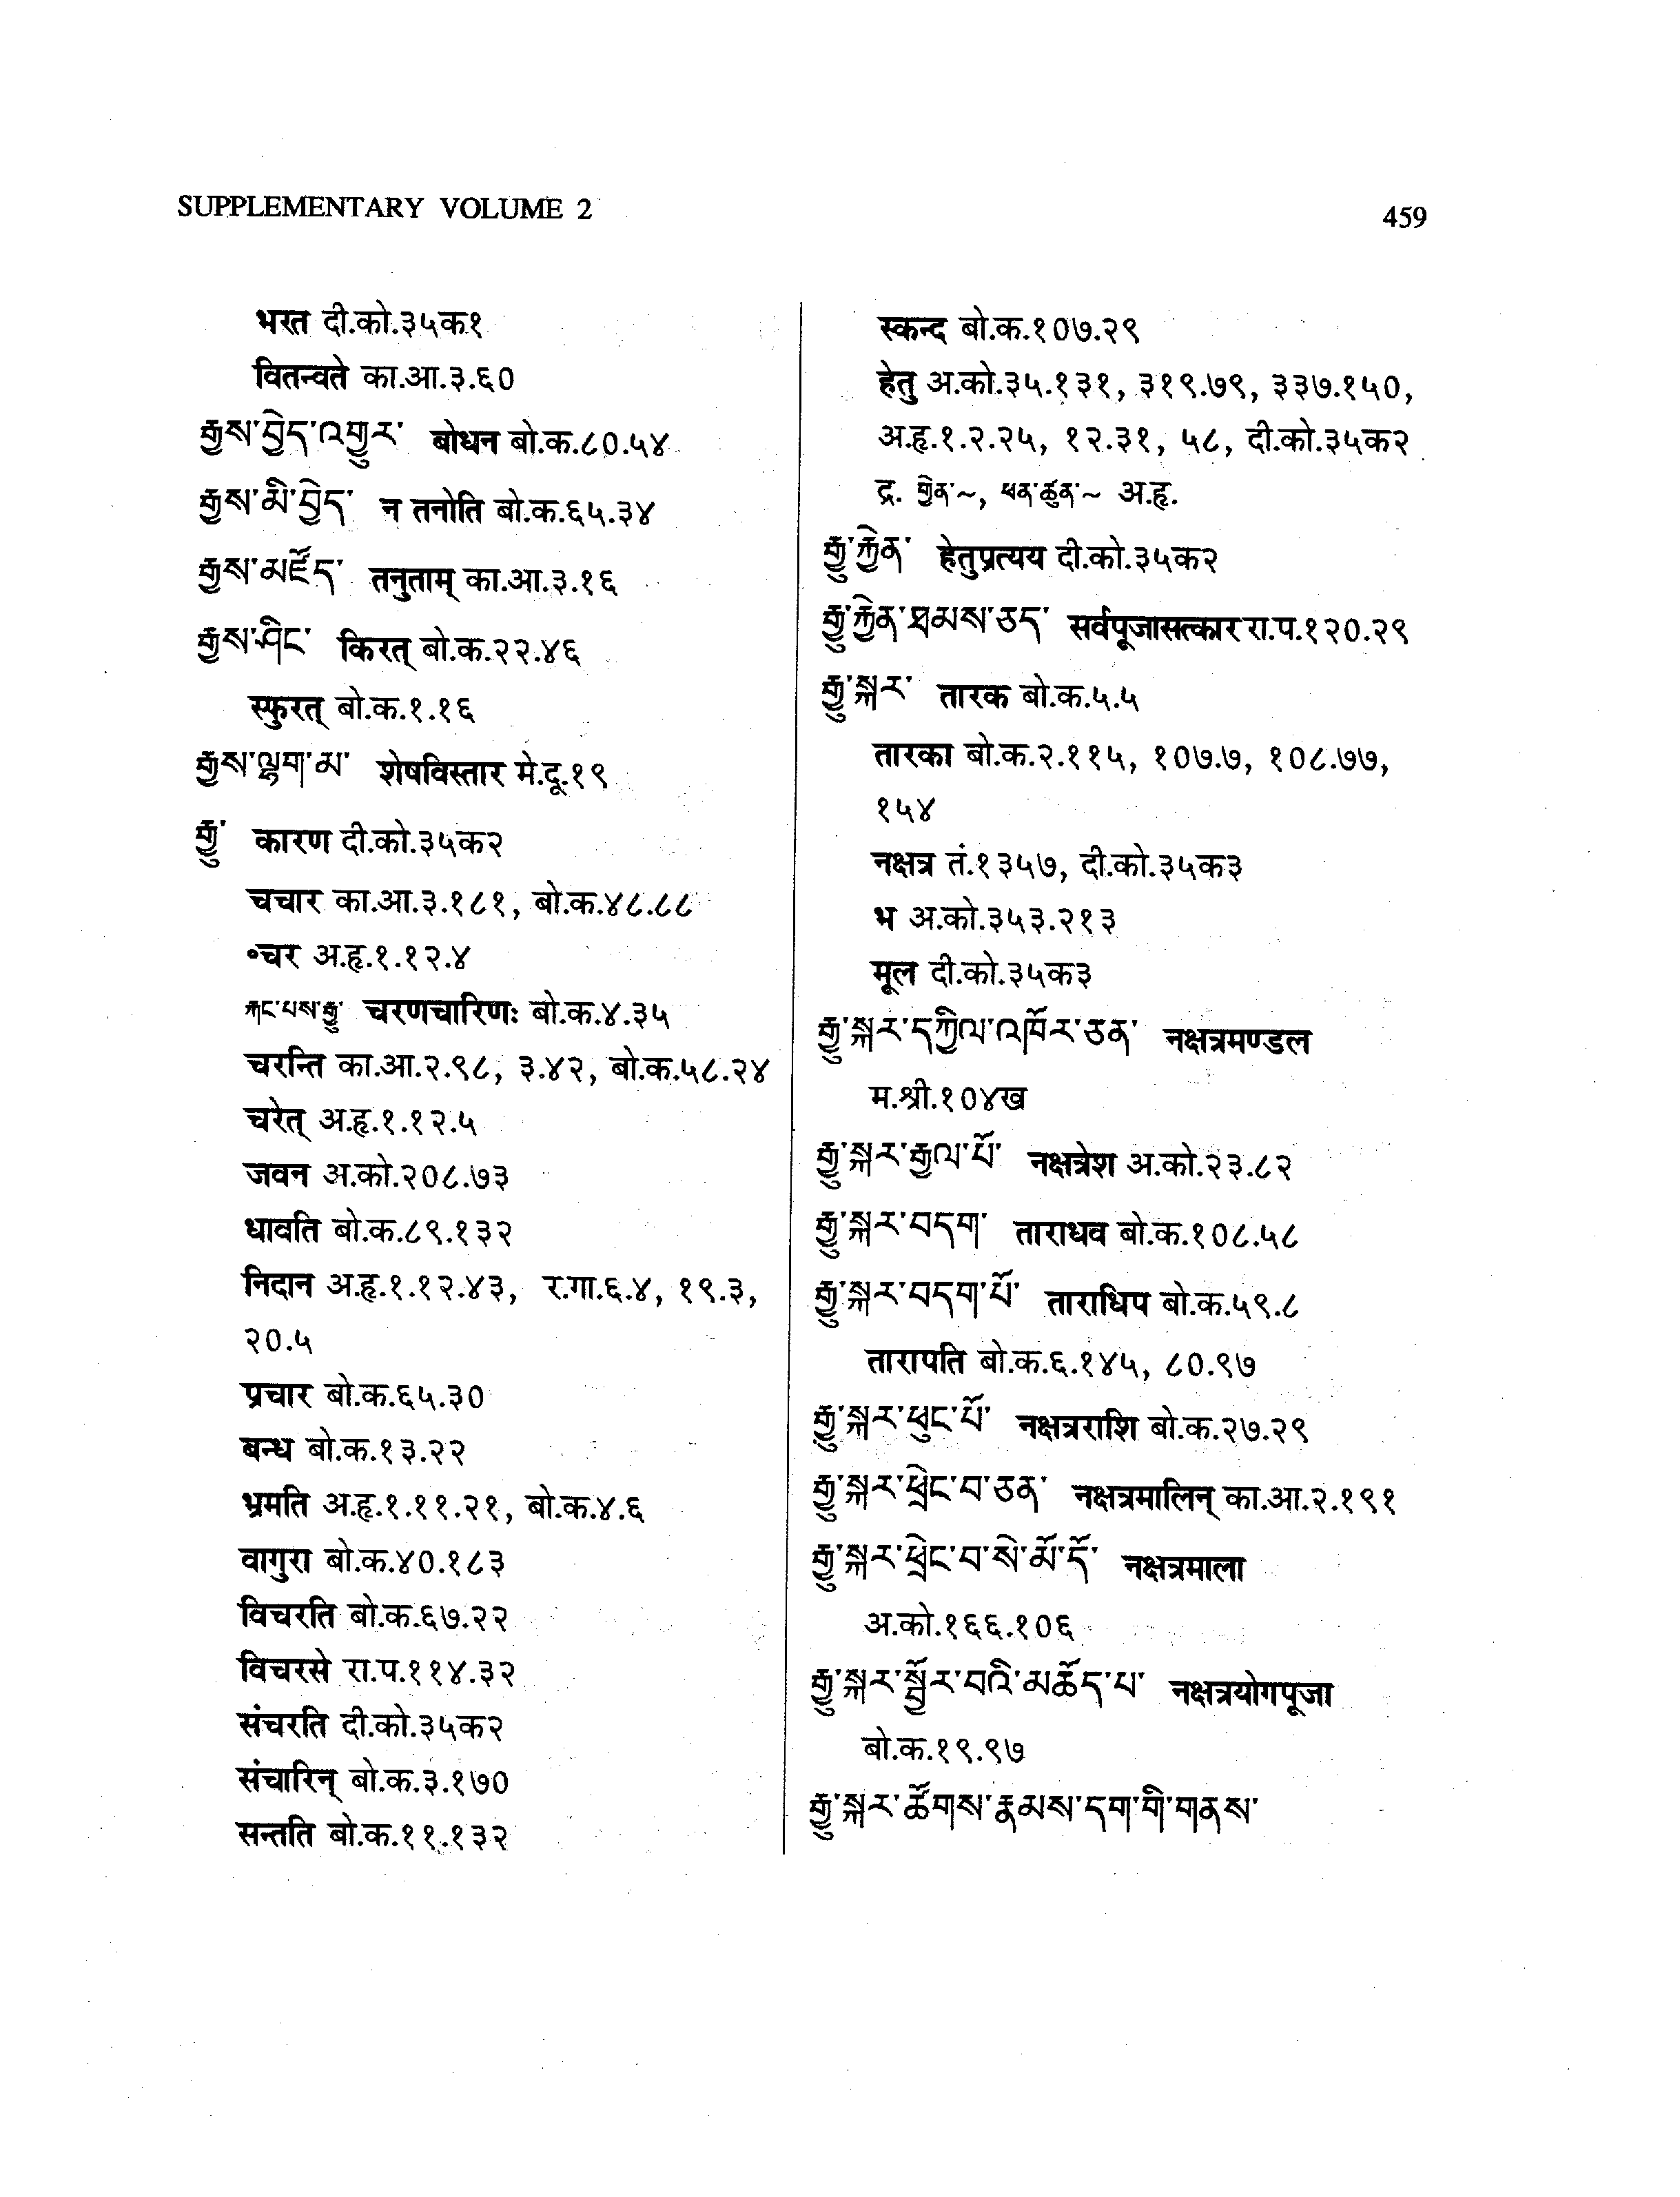 SUPPLEMENTARY VOLUME 2
459
भरत दी.को.३५क१
वितन्वते का.आ.३.६०
རྒྱས་བྱེད་འགྱུར་ बोधन बो.क.८०.५४
རྒྱས་མི་བྱེད་ न तनोति बो.क.६५.३४
རྒྱས་མཛོད་ तनुताम् का.आ.३.१६
རྒྱས་ཤིང་ किरत् बो.क.२२.४६
स्फुरत् बो.क.१.१६
རྒྱས་ལྷག་མ་ शेषविस्तार मे.दू.१९
རྒྱུ་ कारण दी.को.३५क२
चचार का.आ.३.१८१, बो.क.४८.८८
॰चर अ.हृ.१.१२.४
རྐང་པས་རྒྱུ་ चरणचारिणः बो.क.४.३५
चरन्ति का.आ.२.९८, ३.४२, बो.क.५८.२४
चरेत् अ.हृ.१.१२.५
जवन अ.को.२०८.७३
धावति बो.क.८९.१३२
निदान अ.हृ.१.१२.४३, र.गा.६.४, १९.३,
२०.५
प्रचार बो.क.६५.३०
बन्ध बो.क.१३.२२
भ्रमति अ.हृ.१.११.२१, बो.क.४.६
वागुरा बो.क.४०.१८३
विचरति बो.क.६७.२२
विचरसे रा.प.११४.३२
संचरति दी.को.३५क२
संचारिन् बो.क.३.१७०
सन्तति बो.क.११.१३२
स्कन्द बो.क.१०७.२९
हेतु अ.को.३५.१३१, ३१९.७९, ३३७.१५०,
अ.हृ.१.२.२५, १२.३१, ५८, दी.को.३५क२
द्र. གྱེན་~, ཕན་ཚུན་~ अ.हृ.
རྒྱུ་རྐྱེན་ हेतुप्रत्यय दी.को.३५क२
རྒྱུ་རྐྱེན་ཐམས་ཅད་ सर्वपूजासत्कार रा.प.१२०.२९
རྒྱུ་སྐར་ तारक बो.क.५.५
तारका बो.क.२.११५, १०७.७, १०८.७७,
१५४
नक्षत्र तं.१३५७, दी.को.३५क३
भ अ.को.३५३.२१३
मूल दी.को.३५क३
རྒྱུ་སྐར་དཀྱིལ་འཁོར་ཅན་ नक्षत्रमण्डल
म.श्री.१०४ख
རྒྱུ་སྐར་རྒྱལ་པོ་ नक्षत्रेश अ.को.२३.८२
རྒྱུ་སྐར་བདག་ ताराधव बो.क.१०८.५८
རྒྱུ་སྐར་བདག་པོ་ ताराधिप बो.क.५९.८
तारापति बो.क.६.१४५, ८०.९७
རྒྱུ་སྐར་ཕུང་པོ་ नक्षत्रराशि बो.क.२७.२९
རྒྱུ་སྐར་ཕྲེང་བ་ཅན་ नक्षत्रमालिन् का.आ.२.१९१
རྒྱུ་སྐར་ཕྲེང་བ་སེ་མོ་དོ་ नक्षत्रमाला
अ.को.१६६.१०६
རྒྱུ་སྐར་སྦྱོར་བའི་མཆོད་པ་ नक्षत्रयोगपूजा
बो.क.१९.९७
རྒྱུ་སྐར་ཚོགས་རྣམས་དག་གི་གནས་